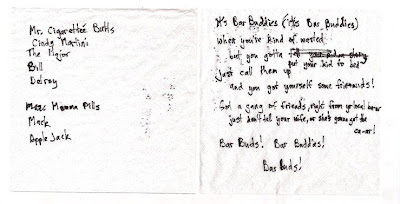 Mr. Cigarette Butts
Cindy Martini
The Major
Bill
Delroy
Mama Pills
Mack
Apple Jack
It's Bar Buddies (It's Bar Buddies)
When you're kind of wasted
but you gotta
put your kid to bed
Just call them up
and you got yourself some friends!
Got a gang of friends, right from yr local bar
just don't tell your wife, or she's gonna get the
ca-ar!
Bar Buds! Bar Buddies!
Bar Buds!